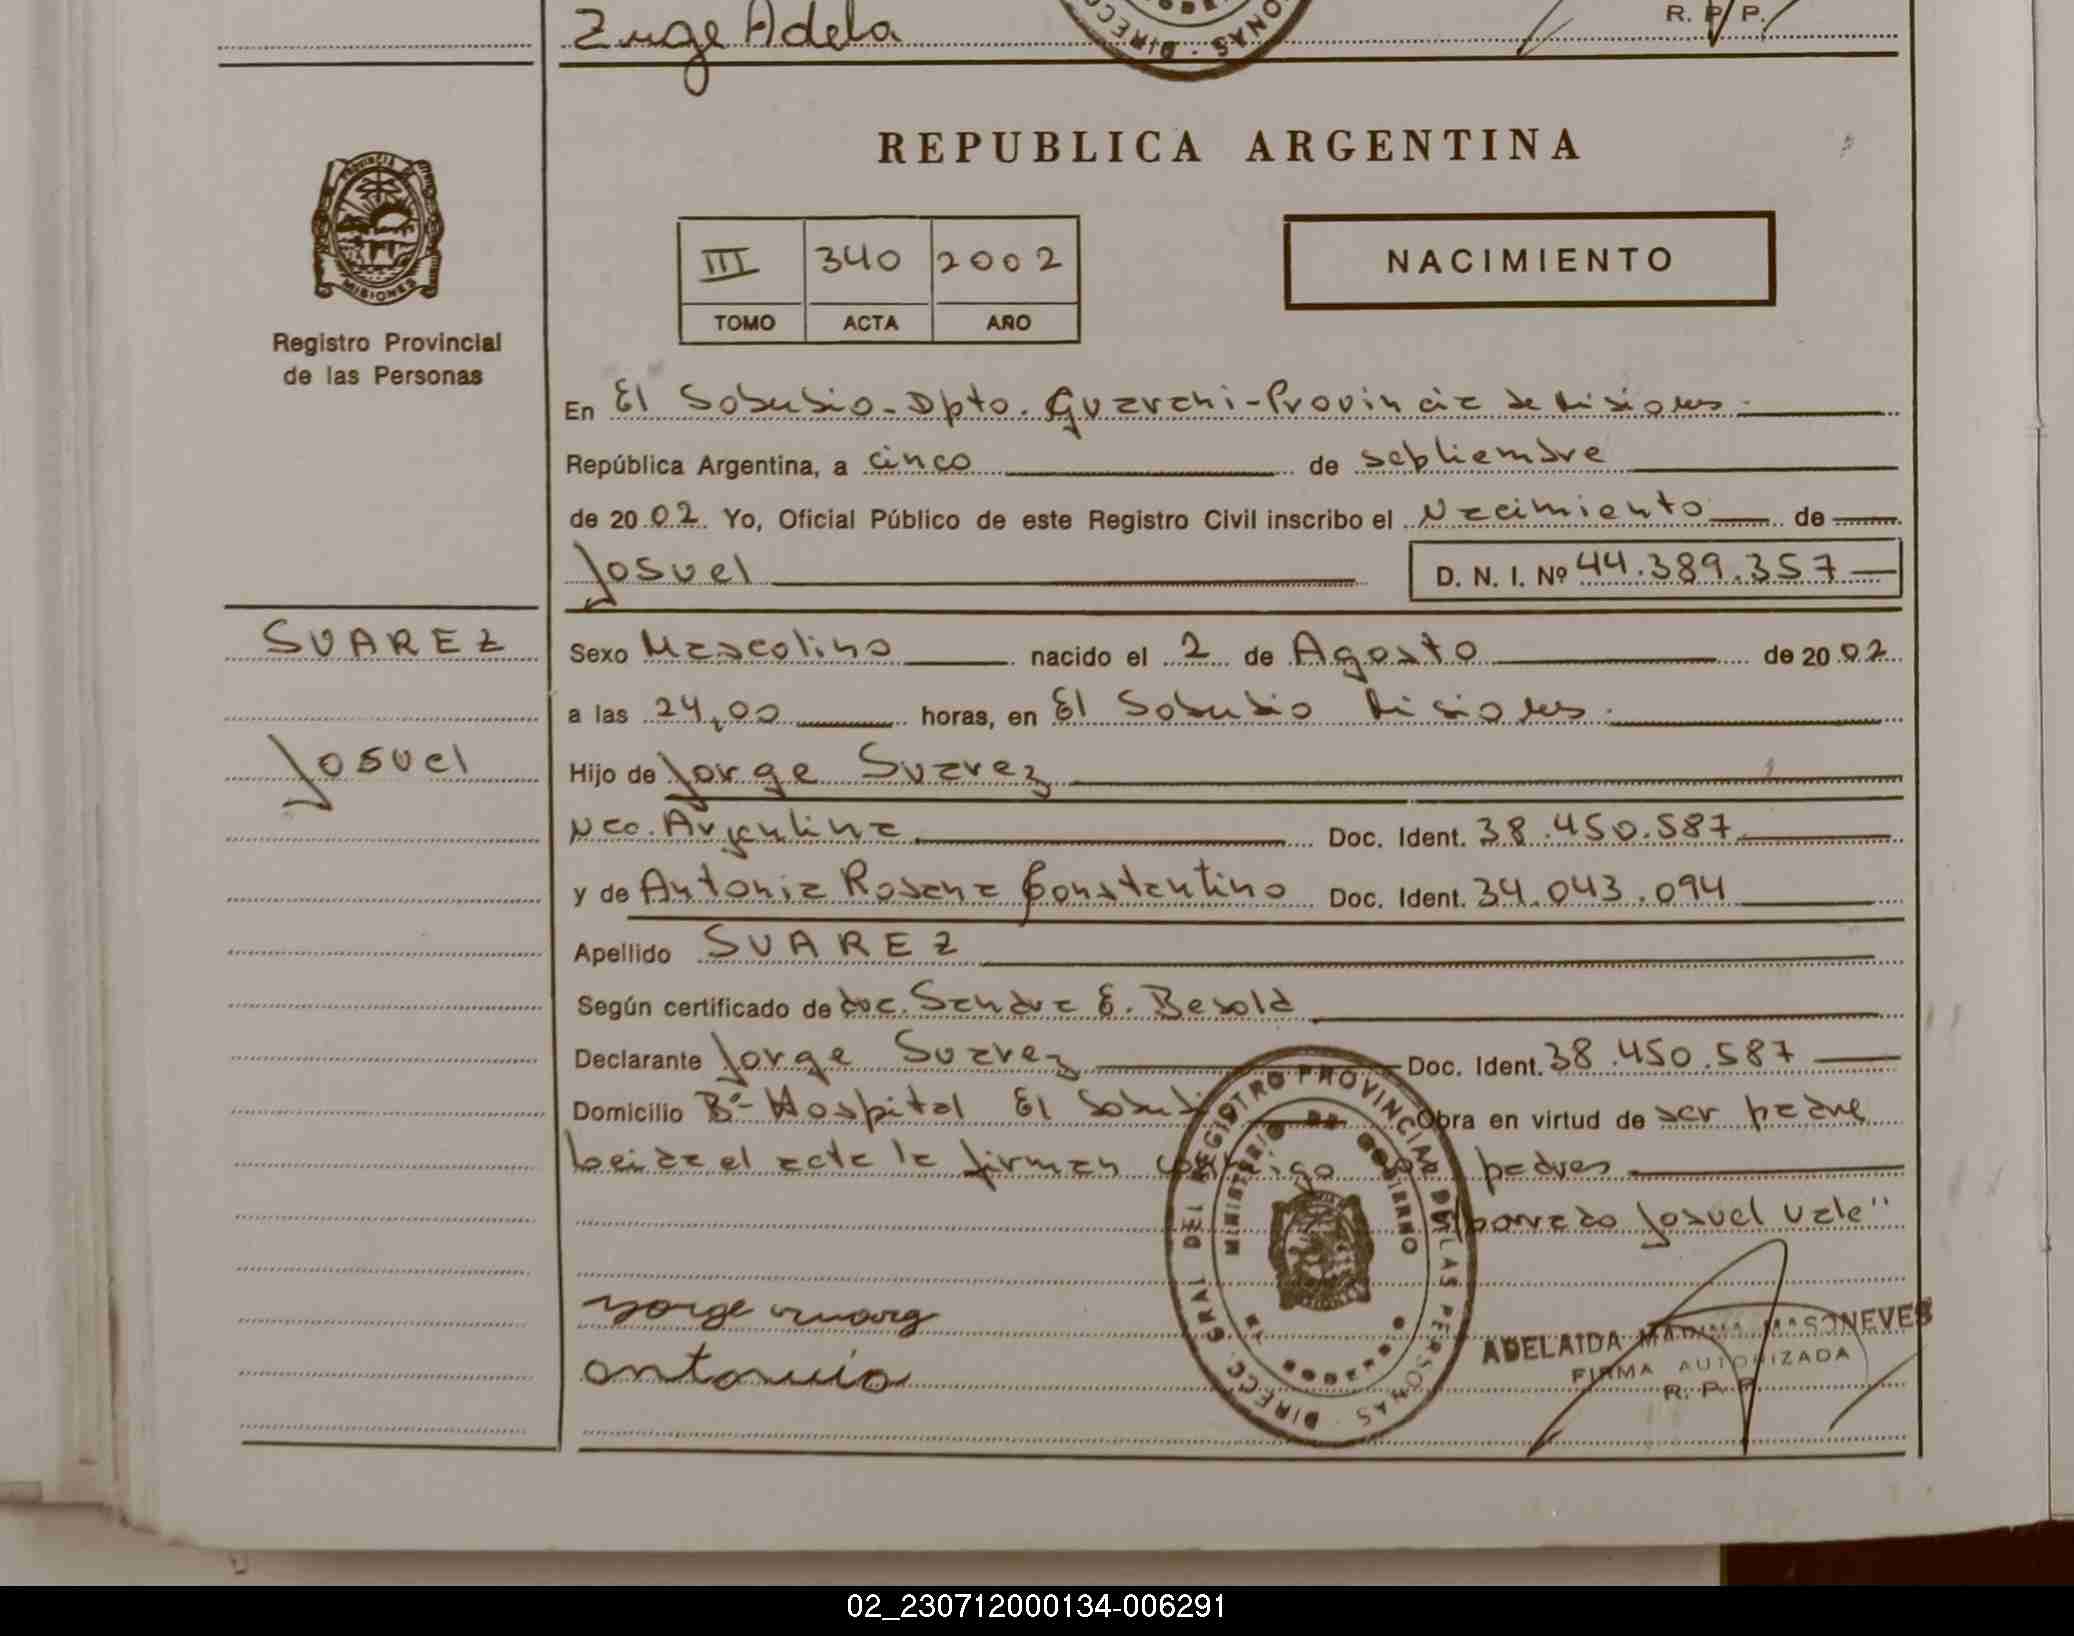 Zunge Adela
R. P. P.
REPUBLICA ARGENTINA
PROVINCIA DE
MISIONES
Registro Provincial
de las Personas
III 340 2002
TOMO ACTA AÑO
NACIMIENTO
En El Soberbio - Dpto. Guarani - Provincia de Misiones.
República Argentina, a cinco de septiembre
de 2002. Yo, Oficial Público de este Registro Civil inscribo el Nacimiento de
Josuel D. N. I. Nº 44.389.357
SUAREZ
Josuel
Sexo Mascolino nacido el 2 de Agosto de 2002
a las 24,00 horas, en El Soberbio Misiones.
Hijo de Jorge Suarez
Nac. Argentina Doc. Ident. 38.450.587
y de Antonia Rosana Constantino Doc. Ident. 34.043.094
Apellido SUAREZ
Según certificado de doc. Sandra E. Besold
Declarante Jorge Suarez Doc. Ident. 38.450.587
Domicilio Bº- Hospital El Soberbio Obra en virtud de ser padre
Leida el acta la firman conmigo padres
borrado Josuel Vale"
DIREC. GRAL DEL REGISTRO PROVINCIAL DE LAS PERSONAS
MINISTERIO DE GOBIERNO
antonio
ADELAIDA
FIRMA AUTORIZADA
R. P. P.
02_230712000134-006291